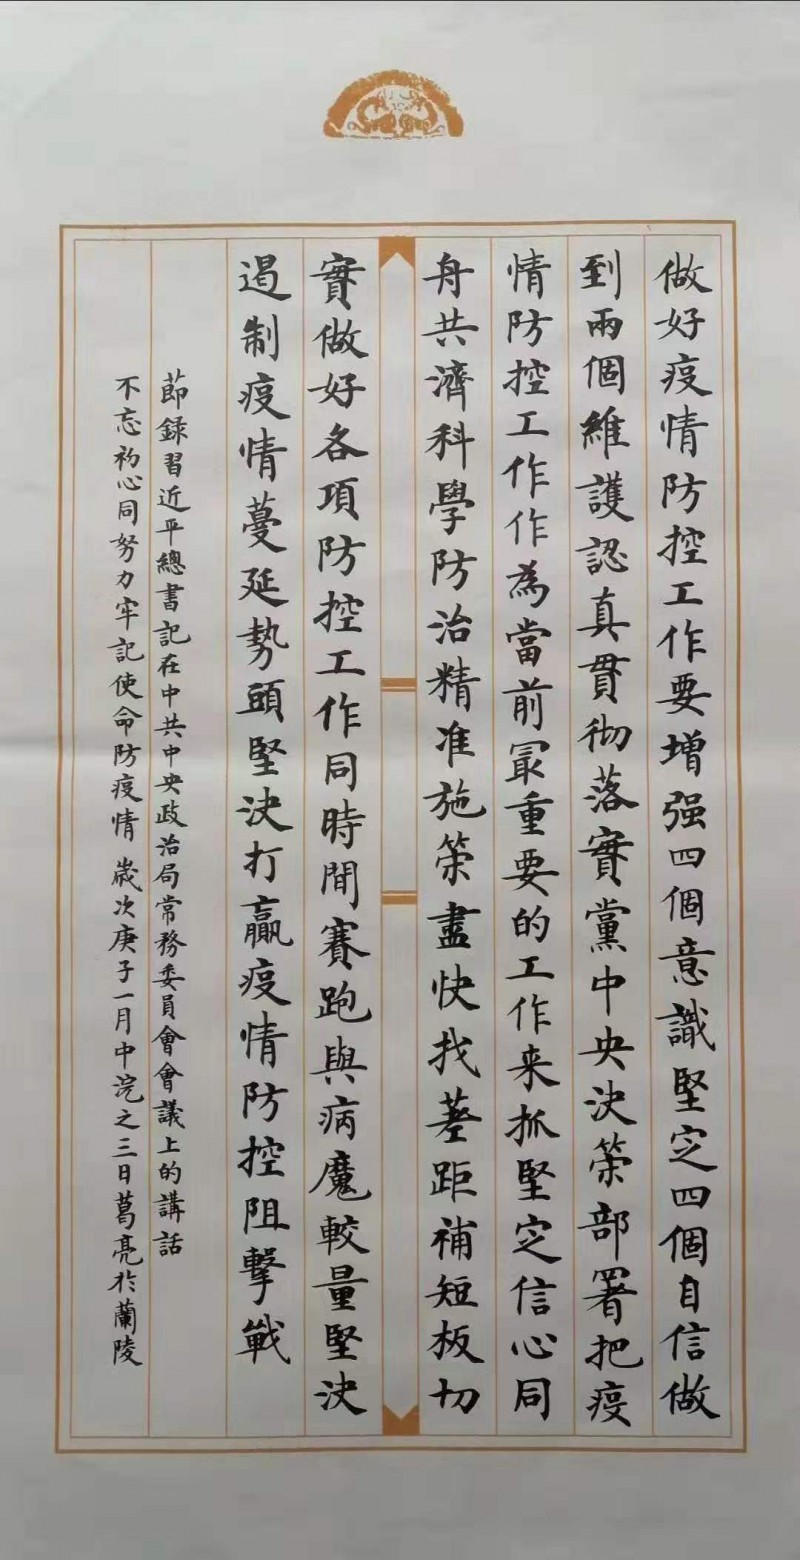 做好疫情防控工作要增强四個意識堅定四個自信做
到兩個維護認真貫彻落實黨中央決策部署把疫
情防控工作作為當前冣重要的工作来抓堅定信心同
舟共濟科學防治精准施策盡快找差距補短板切
實做好各項防控工作同時間賽跑與病魔較量堅決
遏制疫情蔓延勢頭堅決打贏疫情防控阻擊戰
節錄習近平總書記在中共中央政治局常務委員會會議上的講話
不忘初心同努力牢記使命防疫情 歲次庚子一月中浣之三日葛亮於蘭陵